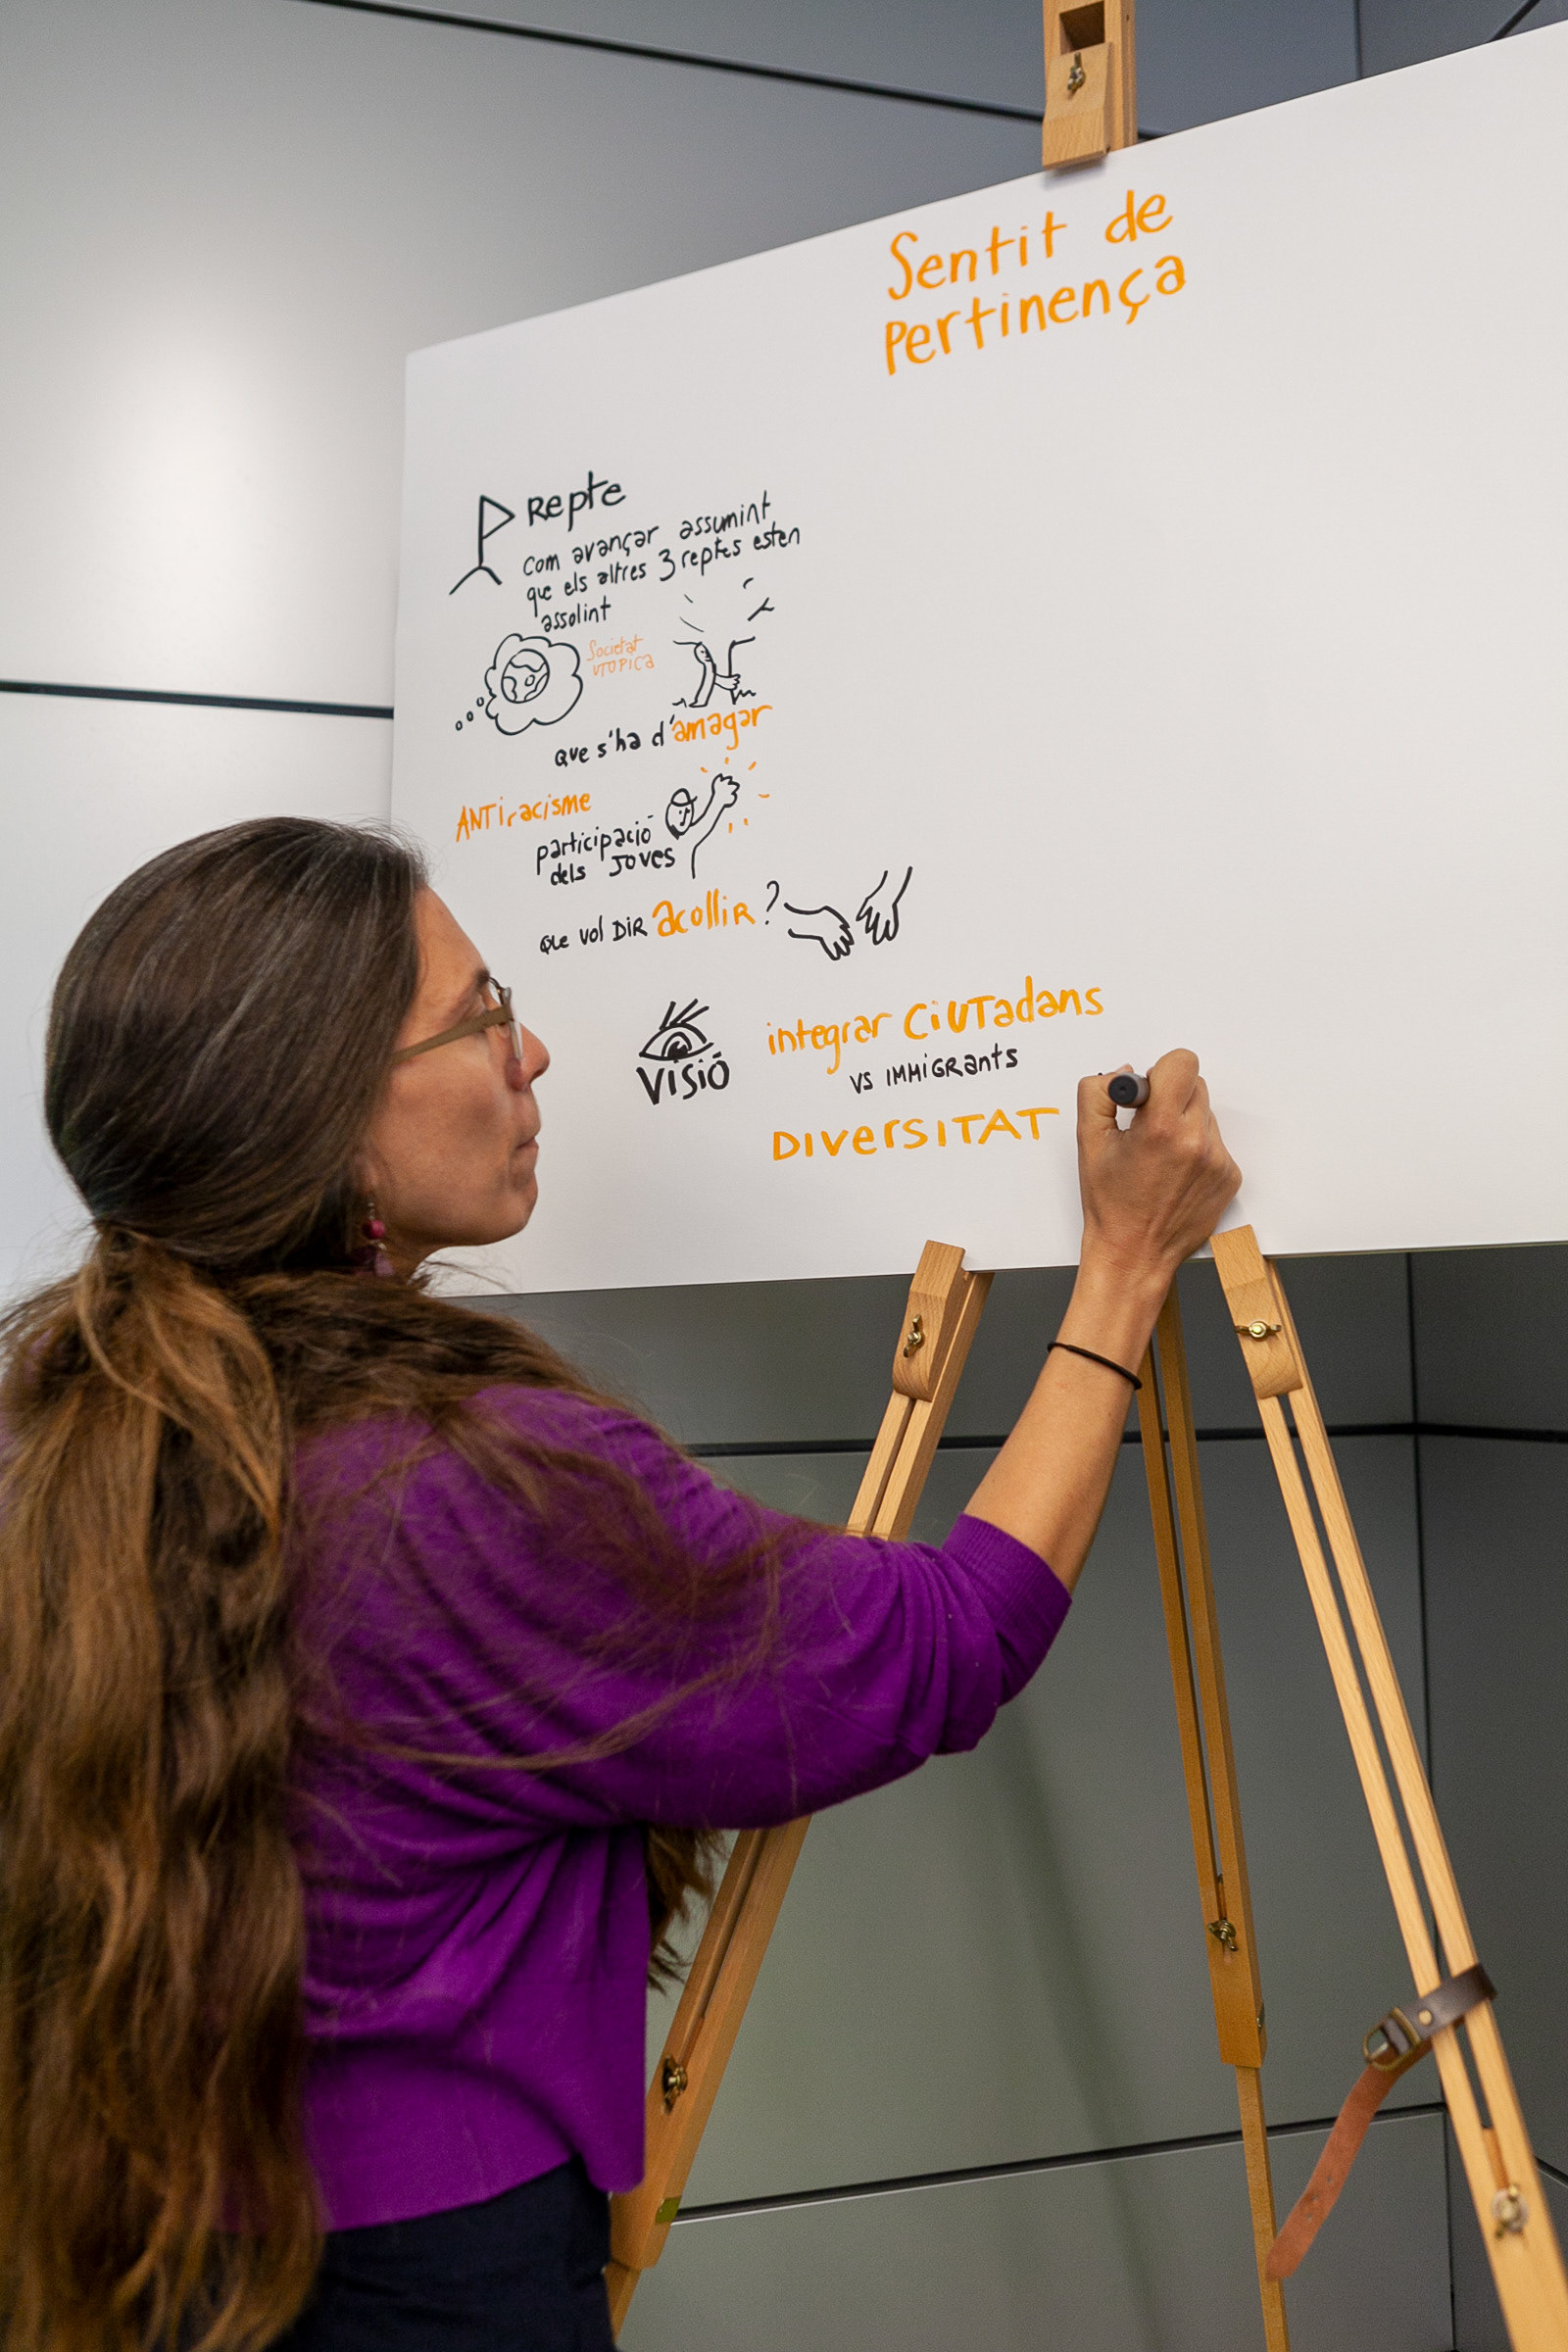 Sentit de
pertinença
Repte
com avançar assumint
que els altres 3 reptes esten
assolint
Societat
UTOPICA
que s'ha d'amagar
ANTiracisme
participació
dels Joves
que vol DIR acollIR?
VISIÓ
integrar CiUTadans
vs IMMiGRants
DIVerSITAT